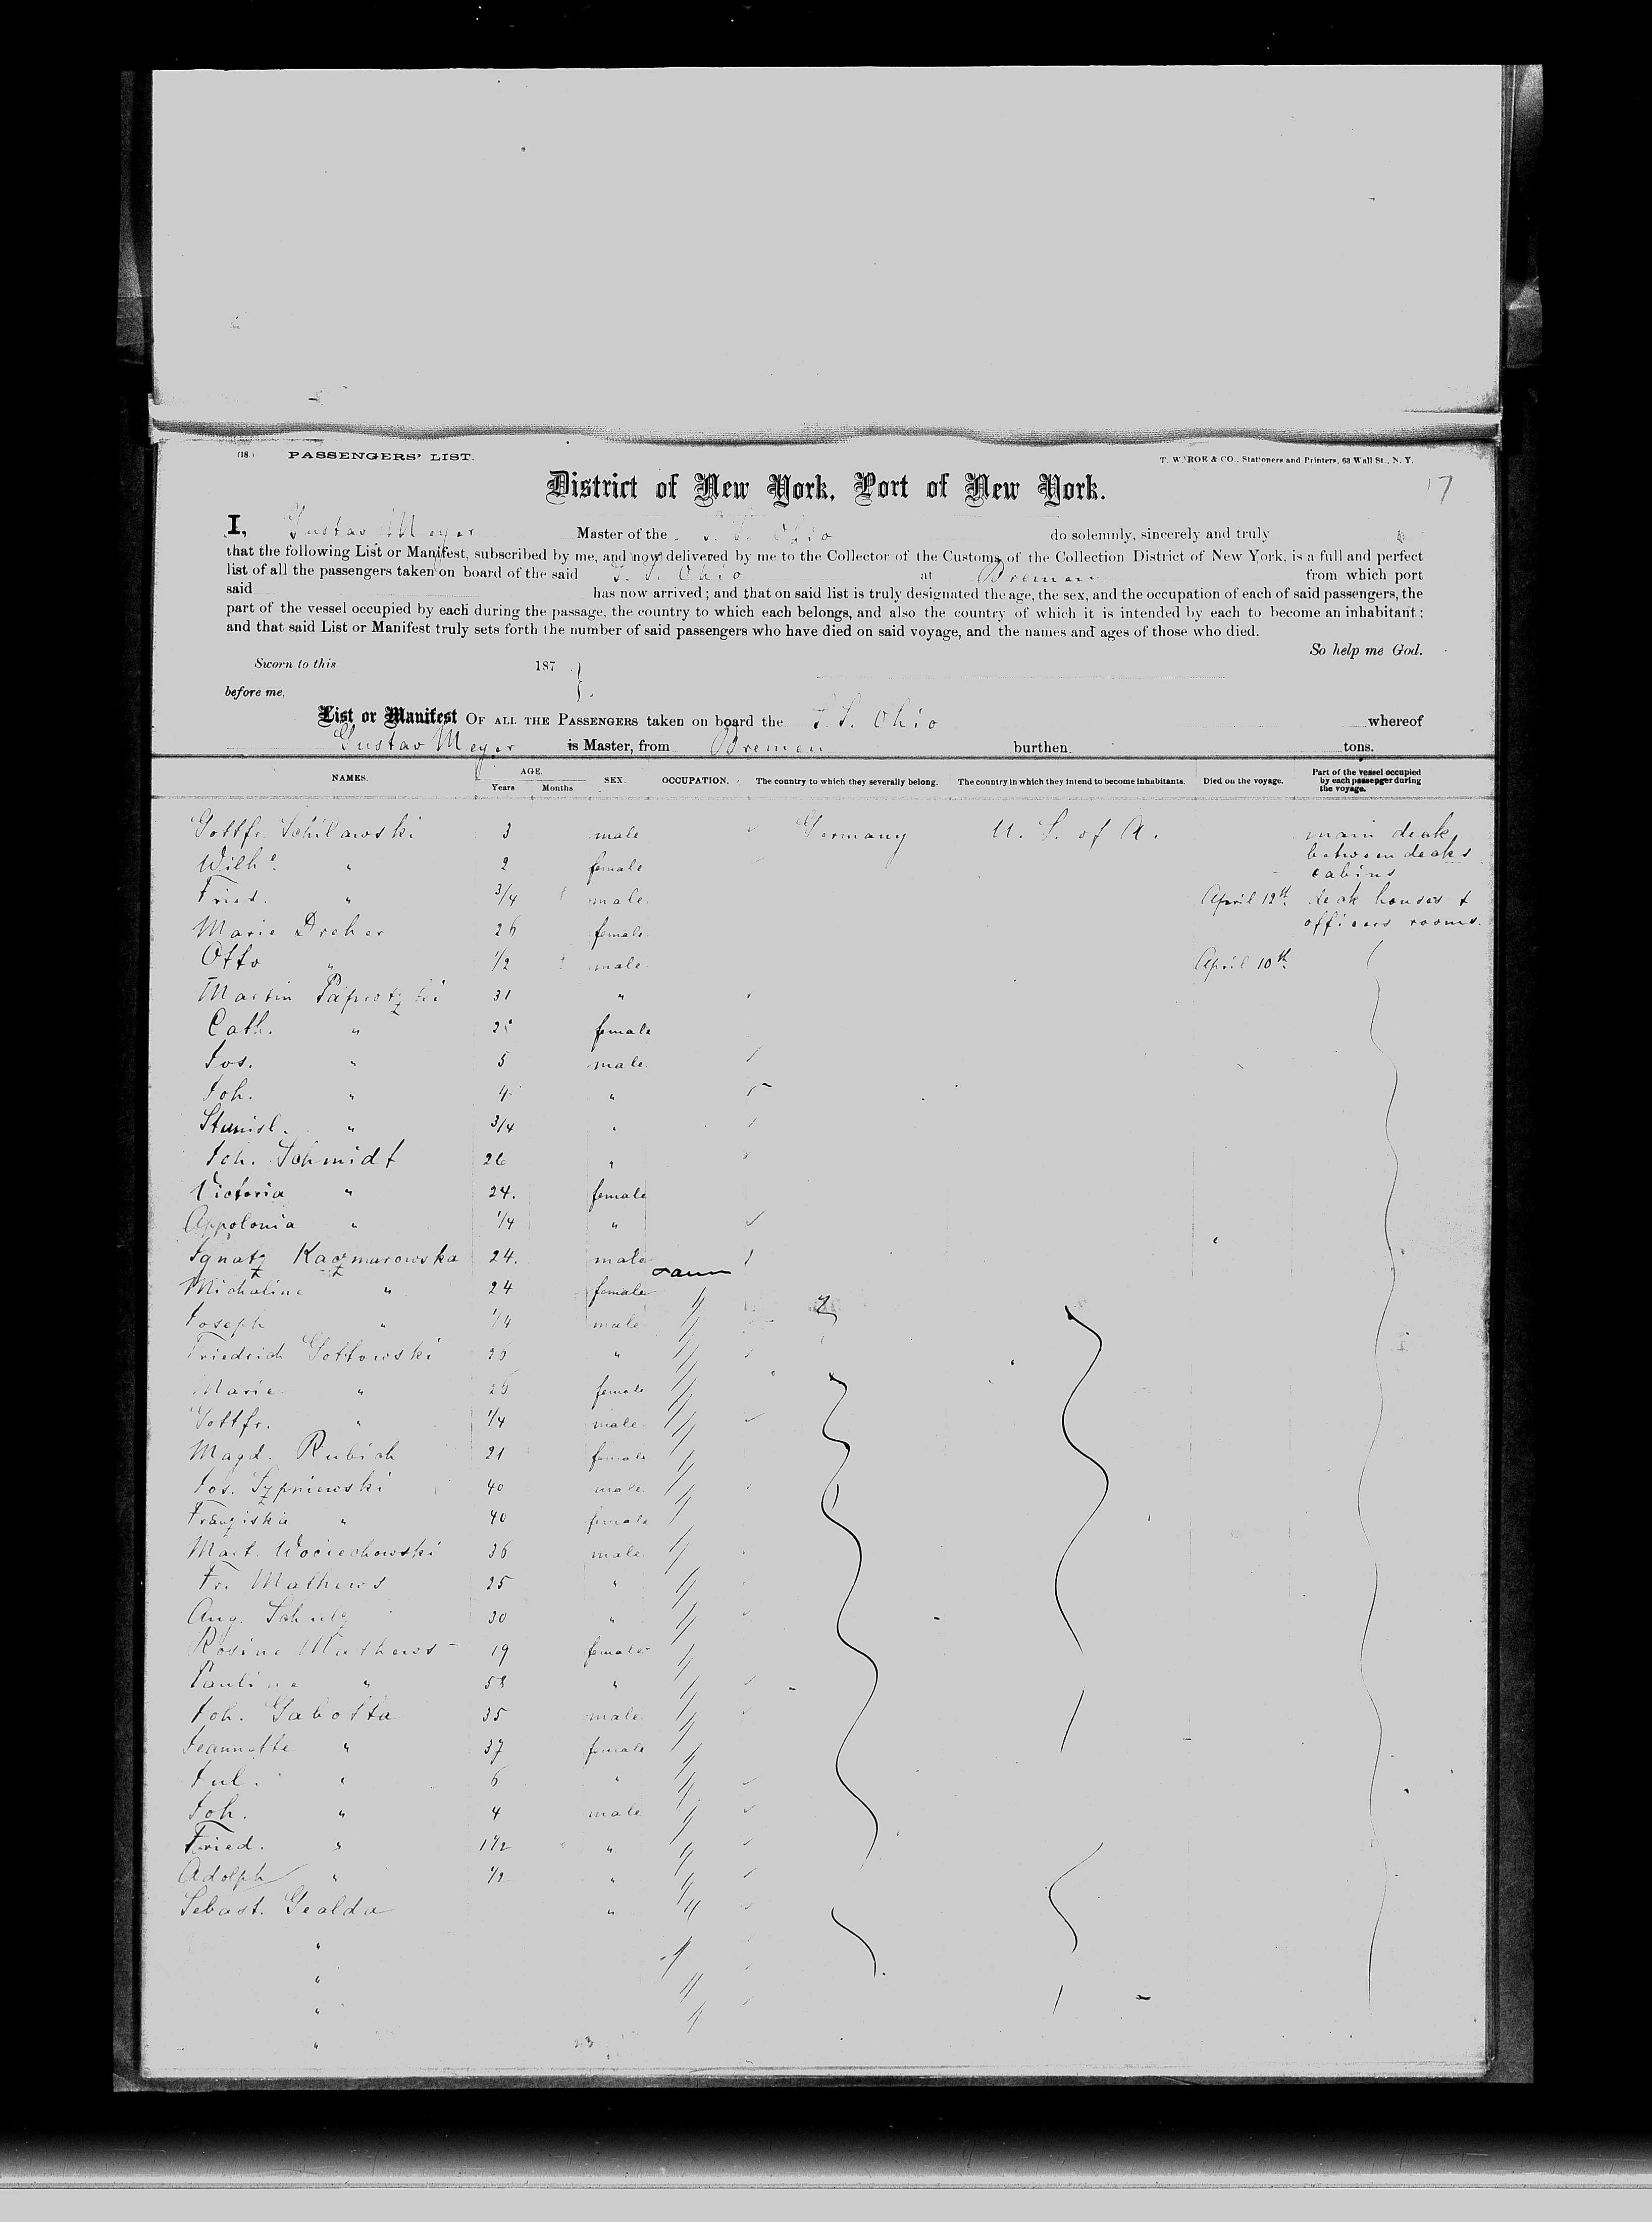 (18.) PASSENGERS' LIST. T. W. ROE & CO., Stationers and Printers, 63 Wall St., N. Y.
District of New York, Port of New York. 17
I, Gustav Meyer Master of the S. S. Ohio do solemnly, sincerely and truly
that the following List or Manifest, subscribed by me, and now delivered by me to the Collector of the Customs of the Collection District of New York, is a full and perfect
list of all the passengers taken on board of the said S. S. Ohio at Bremen from which port
said has now arrived; and that on said list is truly designated the age, the sex, and the occupation of each of said passengers, the
part of the vessel occupied by each during the passage, the country to which each belongs, and also the country of which it is intended by each to become an inhabitant;
and that said List or Manifest truly sets forth the number of said passengers who have died on said voyage, and the names and ages of those who died.
So help me God.
Sworn to this 187
before me,
List or Manifest OF ALL THE PASSENGERS taken on board the S. S. Ohio whereof
Gustav Meyer is Master, from Bremen burthen tons.
NAMES. AGE. Years Months SEX. OCCUPATION. The country to which they severally belong. The country in which they intend to become inhabitants. Died on the voyage. Part of the vessel occupied by each passenger during the voyage.
Gottfr. Schilawski 3 male Germany U. S. of A. main deck,
between decks
Wilhe. " 2 female cabins
Fried. " 3/4 male April 12th deck houses &
Marie Dreher 26 female officers rooms.
Otto " 1/2 male April 10th
Martin Paprotzki 31 "
Cath. " female
Jos. " 5 male
Joh. " 4 "
Stanisl. " 3/4 "
Joh. Schmidt 26 "
Victoria " 24. female
Appolonia " 1/4 "
Ignatz Kaczmarowska 24. male
Michaline " 24 female
Joseph " 1/4 male
Friedrich Gottowski 26 "
Marie " 26 female
Gottfr. " 1/4 male
Magd. Rubich 21 female
Jos. Sypniewski 40 male
Franziska " 40 female
Mart. Wociechowski 36 male
Fr. Mathews 25 "
Aug. Schulz 30 "
Rosine Mathews 19 female
Pauline " 58 "
Joh. Gabotta 35 male
Jeannette " 37 female
Jul. " 6 "
Joh. " 4 male
Fried. " 1 1/2 "
Adolph " 1/2 "
Sebast. Gealda "
"
"
"
"